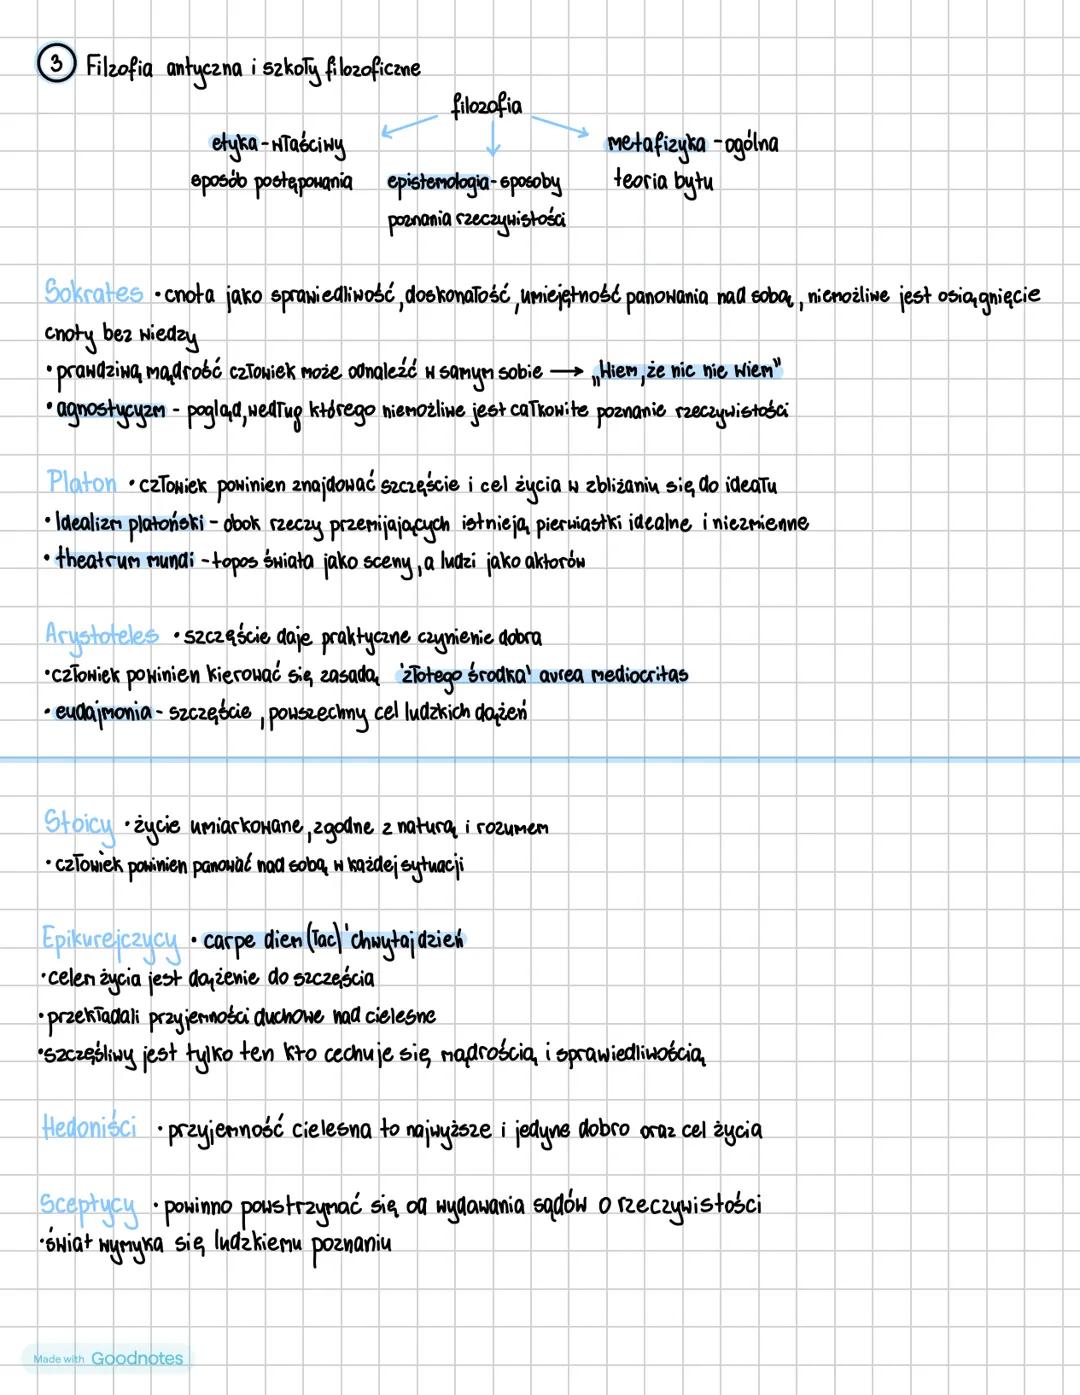 3 Filzofia antyczna i szkoły filozoficzne
filozofia
etyka - właściwy
sposób postępowania
epistemologia - sposoby
poznania rzeczywistości
metafizyka - ogólna
teoria bytu
Sokrates • cnota jako sprawiedliwość, doskonałość, umiejętność panowania nad sobą, niemożliwe jest osiągnięcie
cnoty bez wiedzy
• prawdziwą mądrość człowiek może odnaleźć w samym sobie → „Wiem, że nic nie wiem"
• agnostycyzm - pogląd, według którego niemożliwe jest całkowite poznanie rzeczywistości
Platon • człowiek powinien znajdować szczęście i cel życia w zbliżaniu się do ideału
• Idealizm platoński - obok rzeczy przemijających istnieją pierwiastki idealne i niezmienne
• theatrum mundi - topos świata jako sceny, a ludzi jako aktorów
Arystoteles • szczęście daje praktyczne czynienie dobra
• człowiek powinien kierować się zasadą 'złotego środka' aurea mediocritas
• eudajmonia - szczęście, powszechny cel ludzkich dążeń
Stoicy • życie umiarkowane, zgodne z naturą i rozumem
• człowiek powinien panować nad sobą w każdej sytuacji
Epikurejczycy • carpe diem (łac) 'chwytaj dzień
• celem życia jest dążenie do szczęścia
• przekładali przyjemności duchowe nad cielesne
• szczęśliwy jest tylko ten kto cechuje się mądrością i sprawiedliwością
Hedoniści • przyjemność cielesna to najwyższe i jedyne dobro oraz cel życia
Sceptycy • powinno powstrzymać się od wydawania sądów o rzeczywistości
• świat wymyka się ludzkiemu poznaniu
Made with Goodnotes